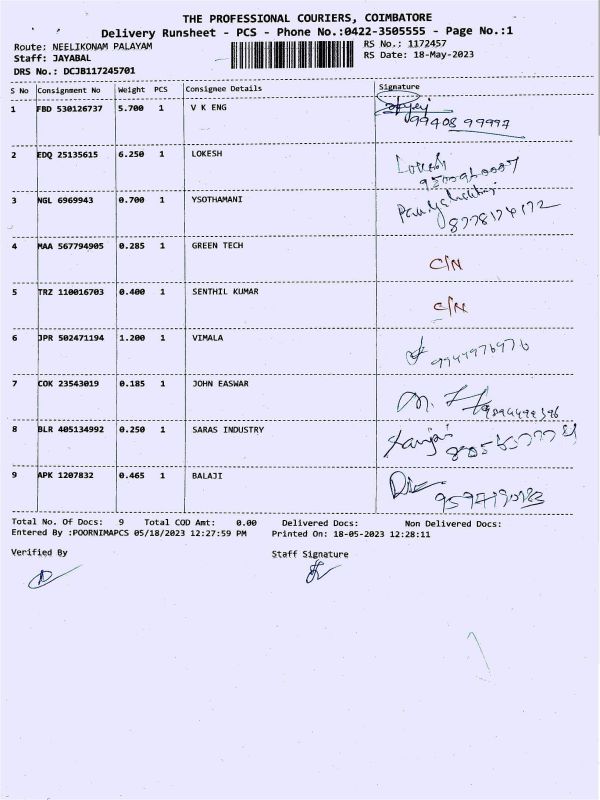 THE PROFESSIONAL COURIERS, COIMBATORE
Delivery Runsheet - PCS - Phone No.:0422-3505555 - Page No.:1
Route: NEELIKONAM PALAYAM RS No.: 1172457
Staff: JAYABAL RS Date: 18-May-2023
DRS No.: DCJB117245701
S No Consignment No Weight PCS Consignee Details Signature
1 FBD 530126737 5.700 1 V K ENG
99408 99997
2 EDQ 25135615 6.250 1 LOKESH Lokesh
3 NGL 6969943 0.700 1 YSOTHAMANI
8778174172
4 MAA 567794905 0.285 1 GREEN TECH C/N
5 TRZ 110016703 0.400 1 SENTHIL KUMAR C/N
6 JPR 502471194 1.200 1 VIMALA 9944976976
7 COK 23543019 0.185 1 JOHN EASWAR
8 BLR 405134992 0.250 1 SARAS INDUSTRY
9 APK 1207832 0.465 1 BALAJI
Total No. Of Docs: 9 Total COD Amt: 0.00 Delivered Docs: Non Delivered Docs:
Entered By :POORNIMAPCS 05/18/2023 12:27:59 PM Printed On: 18-05-2023 12:28:11
Verified By Staff Signature